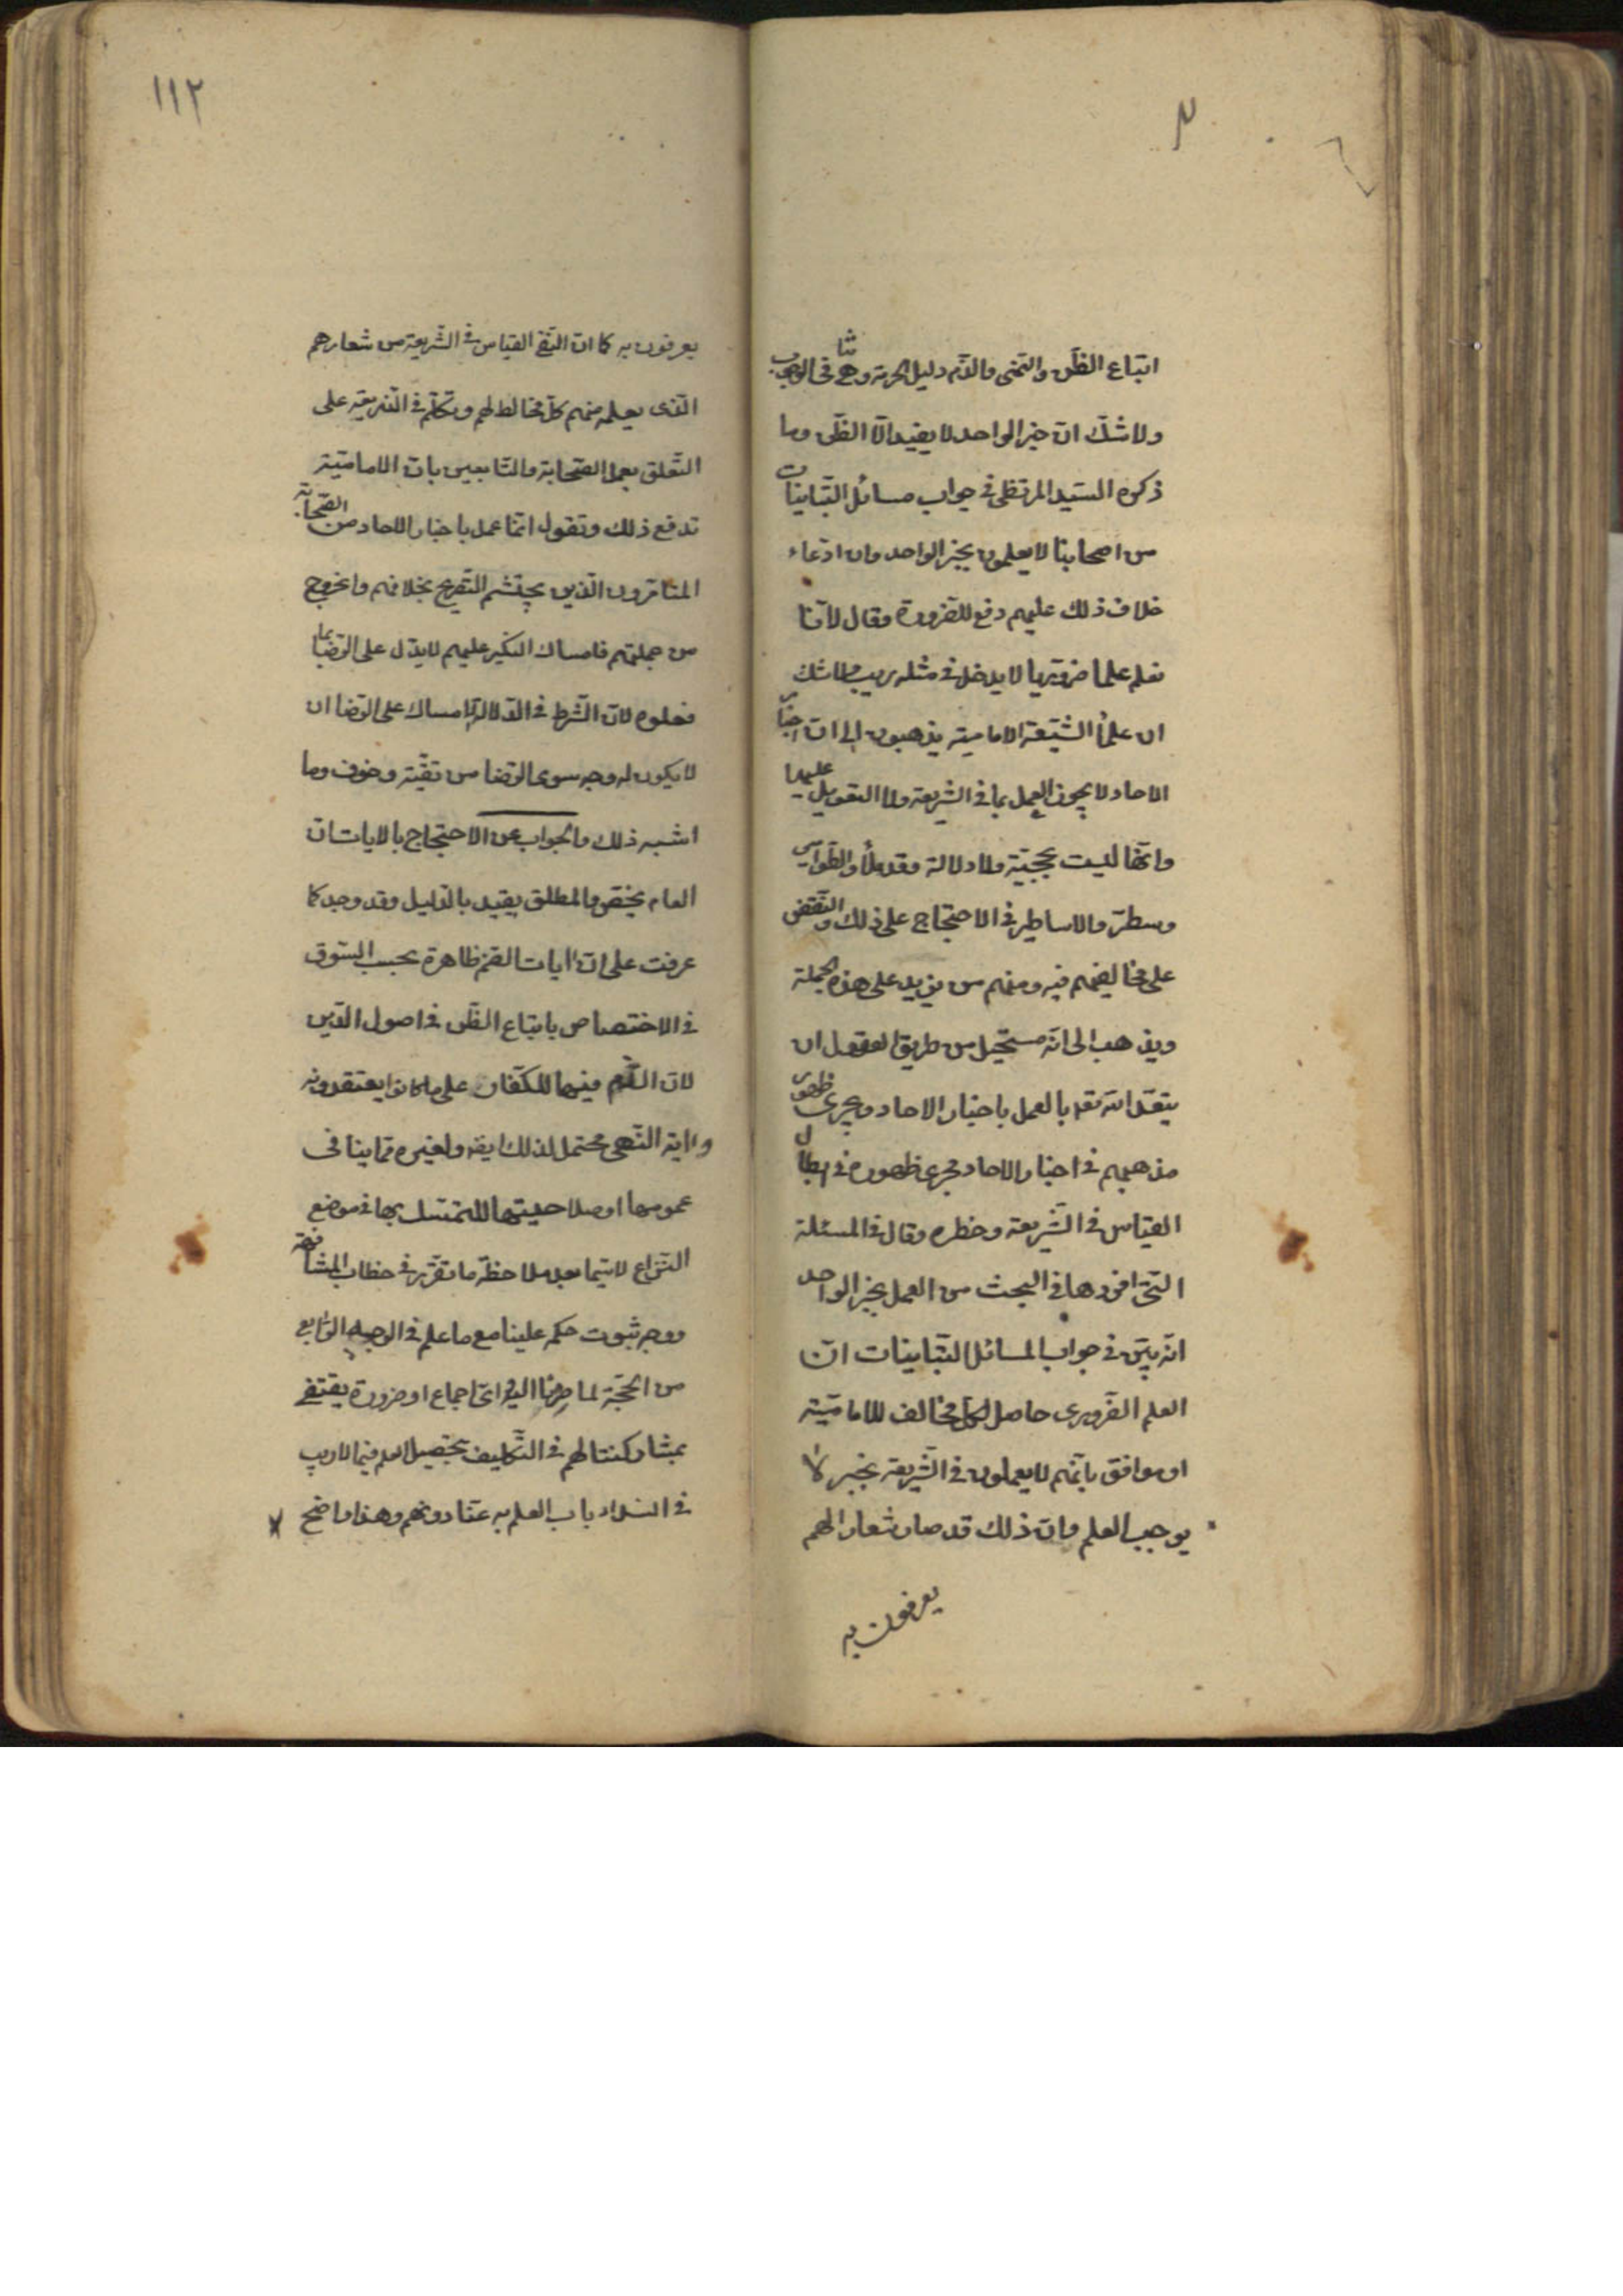 اتباع الظن والنهى والذم دليل الحرمة وهى تنافى الوجوب
ولا شك ان خبر الواحد لا يفيد الا الظن وما
ذكره السيد المرتضى فى جواب مسائل التباينات
من اصحابنا لا يعملون بخبر الواحد وان ادعاء
خلاف ذلك عليهم دفع للضرورة وقال لاننا
نعلم علما ضروريا لا يدخل فى مثله ريب ولا شك
ان علماء الشيعة الامامية يذهبون الى ان اخبار
الاحاد لا يجوز العمل بها فى الشريعة ولا التعويل عليها
وانها ليست بحجة ولا دلالة وقد ملأوا الطوامير
وسطروا الاساطير فى الاحتجاج على ذلك والنقض
على مخالفيهم فيه ومنهم من يزيد على هذه الجملة
ويذهب الى انه مستحيل من طريق العقول ان
يتعبد الله تعالى بالعمل باخبار الاحاد ويجرى ظهور
مذهبهم فى اخبار الاحاد مجرى ظهوره فى ابطال
القياس فى الشريعة وحظره وقال فى المسئلة
التى افردها فى البحث من العمل بخبر الواحد
انه بين فى جواب المسائل التباينات ان
العلم الضرورى حاصل لكل مخالف للامامية
او موافق بانهم لا يعملون فى الشريعة بخبر لا
يوجب العلم وان ذلك قد صار شعارا لهم
يعرفون به
١١٢
يعرفون به كما ان النفى القياس فى الشريعة من شعارهم
الذى يعلمه منهم كل مخالط لهم وتكلم فى الذريعة على
التعلق بعمل الصحابة والتابعين بان الامامية
تدفع ذلك وتقول انما عمل باخبار الاحاد من الصحابة
المتامرون الذين يحتشم التصريح بخلافهم والخروج
من جملتهم فامساك النكير عليهم لا يدل على الرضا بما
فعلوه لان الشرط فى الدلالة الامساك على الرضا ان
لا يكون له وجه سوى الرضا من تقية وخوف وما
اشبه ذلك والجواب عن الاحتجاج بالايات ان
العام يخص والمطلق يقيد بالدليل وقد وجد كما
عرفت على ان ايات الذم ظاهرة بحسب السوق
فى الاختصاص باتباع الظن فى اصول الدين
لان الذم فيها للكفار على ما كانوا يعتقدونه
واية النهى محتمل لذلك ايضا ولغيره مما ينافى
عمومها او صلاحيتها للتمسك بها فى موضع
النزاع لا سيما بعد ملاحظة ما تقرر فى خطاب المشافهة
ووجه ثبوت حكمه علينا مع ما علم فى الوجه الرابع
من الحجة لما صرنا اليه اى اجماع او ضرورة يقتضى
بمشاركتنا لهم فى التكليف بتحصيل العلم فيما لا ريب
فى انسداد باب العلم به عنا دونهم وهذا واضح